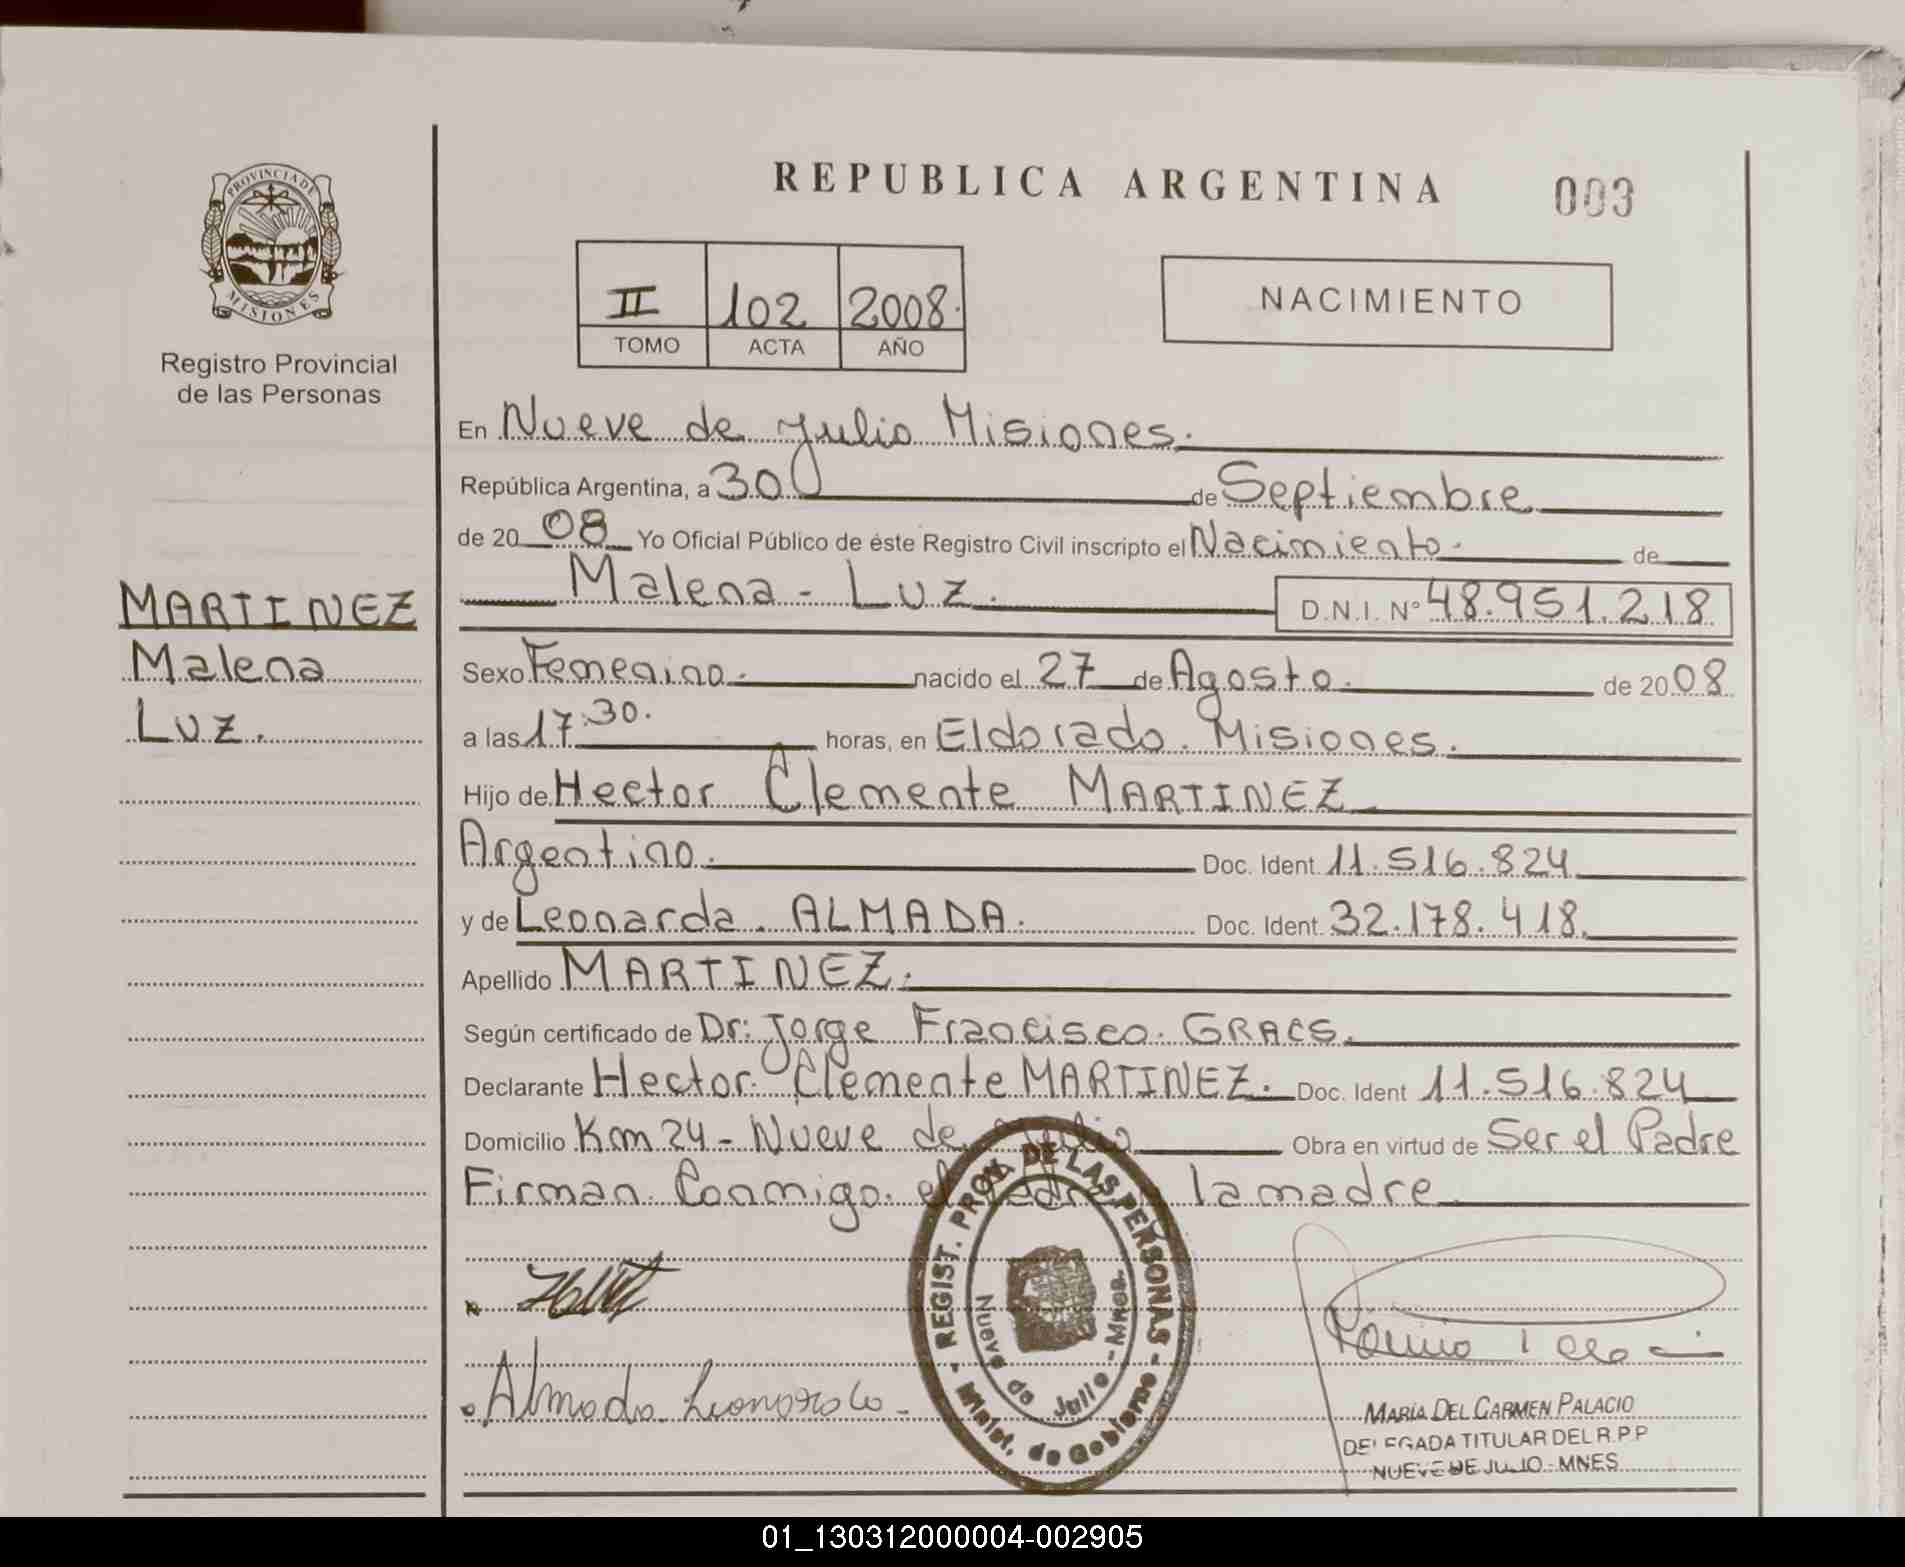 REPUBLICA ARGENTINA
003
PROVINCIA DE
MISIONES
Registro Provincial
de las Personas
II 102 2008.
TOMO ACTA AÑO
NACIMIENTO
MARTINEZ
Malena
Luz.
En Nueve de Julio Misiones.
República Argentina, a 30 de Septiembre
de 2008 Yo Oficial Público de éste Registro Civil inscripto el Nacimiento. de
Malena - Luz. D.N.I. Nº 48.951.218
Sexo Femenino. nacido el 27 de Agosto. de 2008
a las 17:30. horas, en Eldorado. Misiones.
Hijo de Hector Clemente MARTINEZ
Argentino. Doc. Ident. 11.516.824
y de Leonarda. ALMADA. Doc. Ident. 32.178.418.
Apellido MARTINEZ.
Según certificado de Dr: Jorge Francisco. GRACS.
Declarante Hector. Clemente MARTINEZ. Doc. Ident 11.516.824
Domicilio Km 24 - Nueve de Julio Obra en virtud de Ser el Padre
Firman Conmigo. el Padre y la madre
Almada Leonarda
REGIST. PROV. DE LAS PERSONAS - Minist. de Gobierno -
Nueve de Julio - Mnes.
MARÍA DEL CARMEN PALACIO
DELEGADA TITULAR DEL R.P.P
NUEVE DE JULIO - MNES
01_130312000004-002905